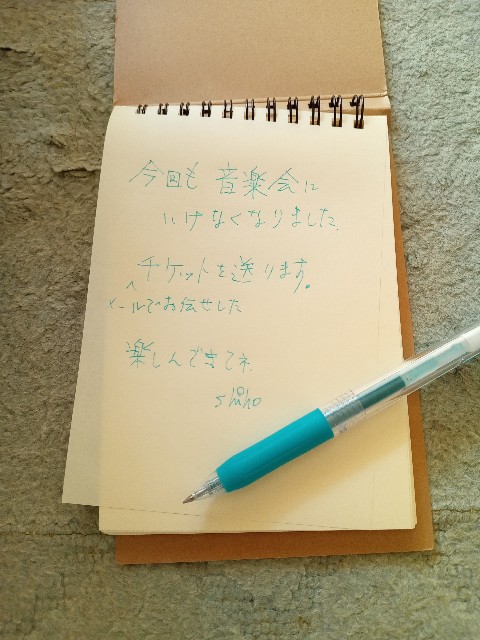 今回も 音楽会に
いけなくなりました。
チケットを送ります。
メールでお伝せした
楽しんできてネ。
shiho